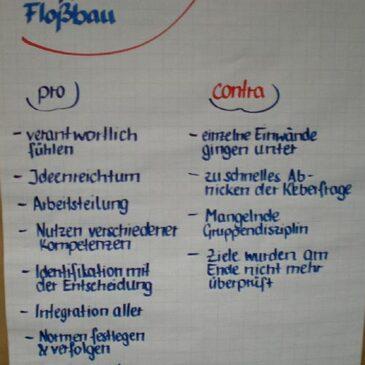 Floßbau
pro
- verantwortlich
fühlen
- Ideenreichtum
- Arbeitsteilung
- Nutzen verschiedener
Kompetenzen
- Identifikation mit
der Entscheidung
- Integration aller
- Normen festlegen
& verfolgen
contra
- einzelne Einwände
gingen unter
- zu schnelles Ab-
nicken der Kleberfrage
- Mangelnde
Gruppendisziplin
- Ziele wurden am
Ende nicht mehr
überprüft